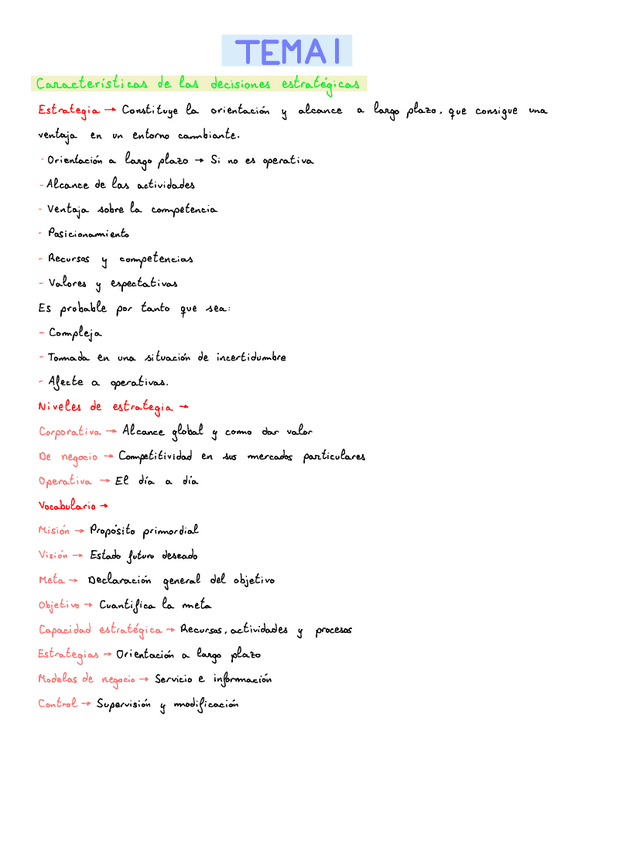 TEMA 1
Características de las decisiones estratégicas
Estrategia → Constituye la orientación y alcance a largo plazo, que consigue una
ventaja en un entorno cambiante.
- Orientación a largo plazo → Si no es operativa
- Alcance de las actividades
- Ventaja sobre la competencia
- Posicionamiento
- Recursos y competencias
- Valores y espectativas
Es probable por tanto que sea:
- Compleja
- Tomada en una situación de incertidumbre
- Afecte a operativas.
Niveles de estrategia →
Corporativa → Alcance global y como dar valor
De negocio → Competitividad en sus mercados particulares
Operativa → El día a día
Vocabulario →
Misión → Propósito primordial
Visión → Estado futuro deseado
Meta → Declaración general del objetivo
Objetivo → Cuantifica la meta
Capacidad estratégica → Recursos, actividades y procesos
Estrategias → Orientación a largo plazo
Modelos de negocio → Servicio e información
Control → Supervisión y modificación